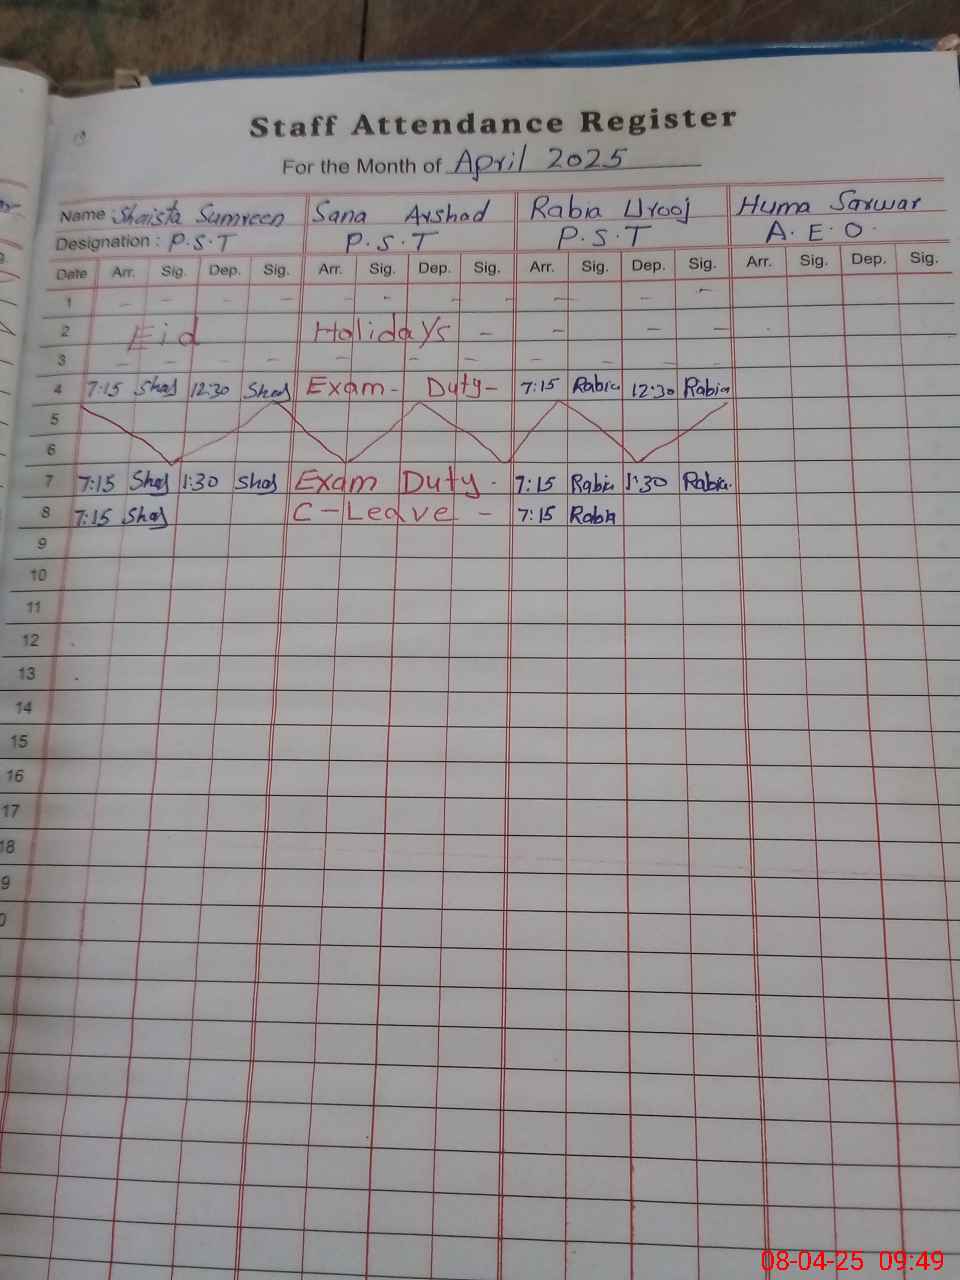 Staff Attendance Register
For the Month of April 2025
Name Shaista Sumreen Sana Arshad Rabia Urooj Huma Sarwar
Designation : P.S.T P.S.T P.S.T A.E.O.
Date Arr. Sig. Dep. Sig. Arr. Sig. Dep. Sig. Arr. Sig. Dep. Sig. Arr. Sig. Dep. Sig.
1 – – – – – – – – – – –
2 Eid Holidays – – – –
3 – – – – – – – –
4 7:15 Shas 12:30 Shas Exam - Duty - 7:15 Rabia 12:30 Rabia
5
6
7 7:15 Shas 1:30 Shas Exam Duty - 7:15 Rabia 1:30 Rabia.
8 7:15 Shas C-Leave - 7:15 Rabia
9
10
11
12
13
14
15
16
17
18
9
0
08-04-25 09:49